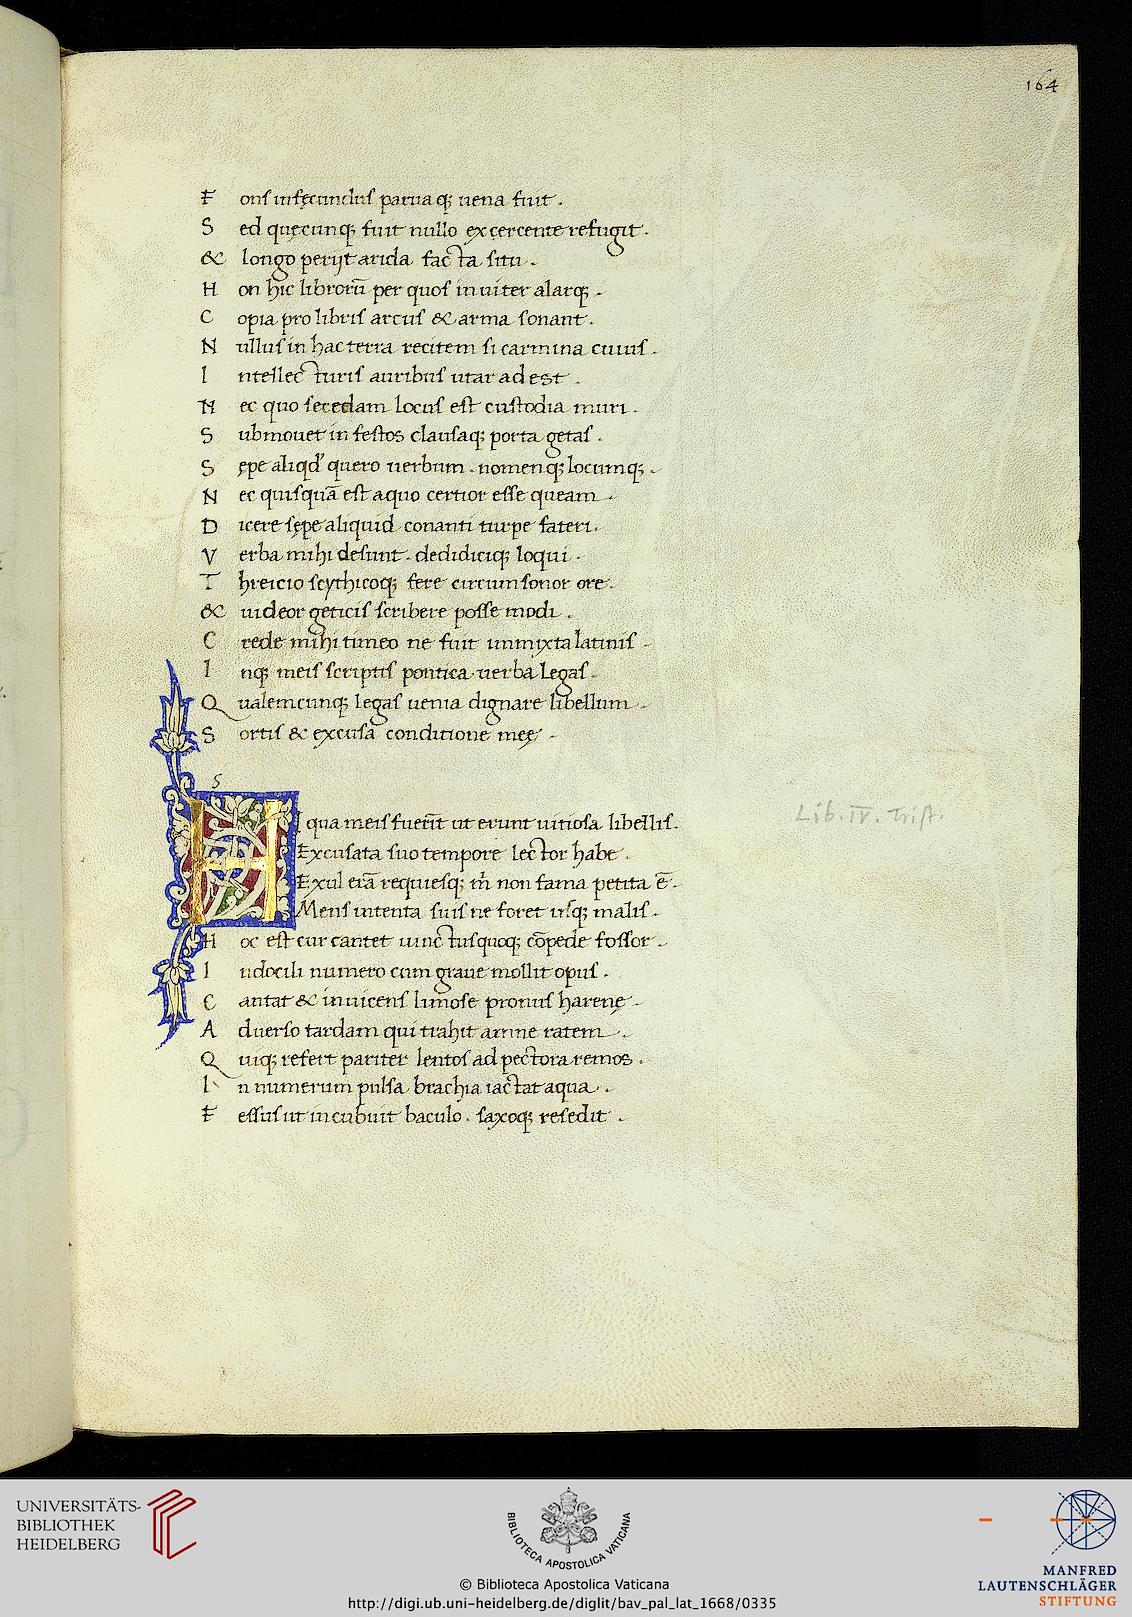 164
F ons infęcundus parua q; uena fuit .
S ed quęcunq; fuit nullo excercente refugit .
& longo perijt arida facta situ .
H on hic librorū per quos inuiter alarq; .
C opia pro libris arcus & arma sonant .
N ullus in hac terra recitem si carmina cuius .
I ntellecturis auribus utar adest .
N ec quo secedam locus est custodia muri .
S ubmouet infestos clausaq; porta getas .
S ępe aliqd' quero uerbum . nomenq; locumq; .
N ec quisquā est aquo certior esse queam .
D icere sępe aliquid conanti turpe fateri .
V erba mihi desunt . dedidiciq; loqui .
T hreicio scythicoq; fere circumsonor ore .
& uideor geticis scribere posse modi .
C rede mihi timeo ne fuit unmixta latinis .
I nq; meis scriptis pontica uerba legas .
Q ualemcunq; legas uenia dignare libellum .
S ortis & excusa conditione meę .
S
H I qua meis fuerīt ut erunt uitiosa libellis .
Excusata suo tempore lector habe .
Exul erā requiesq; m̄ non fama petita ē .
Mens intenta suis ne foret usq; malis .
H oc est cur cantet uinctusquoq; cōpede fossor .
I ndocili numero cum graue mollit opus .
C antat & inuicens limose pronus harenę .
A duerso tardam qui trahit amne ratem .
Q uiq; refert pariter lentos ad pectora remos .
I n numerum pulsa brachia iactat aqua .
F essus ut incubuit baculo . saxoq; resedit .
Lib. IV. Trist.
UNIVERSITÄTS-
BIBLIOTHEK
HEIDELBERG
BIBLIOTECA APOSTOLICA VATICANA
MANFRED
LAUTENSCHLÄGER
STIFTUNG
© Biblioteca Apostolica Vaticana
http://digi.ub.uni-heidelberg.de/diglit/bav_pal_lat_1668/0335